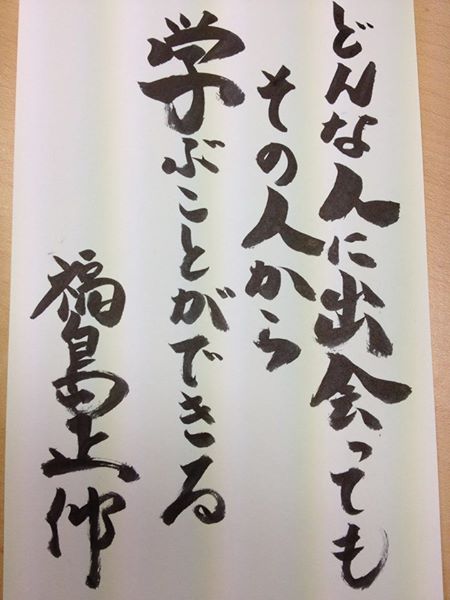 どんな人に出会っても
その人から
学ぶことができる
福島正伸